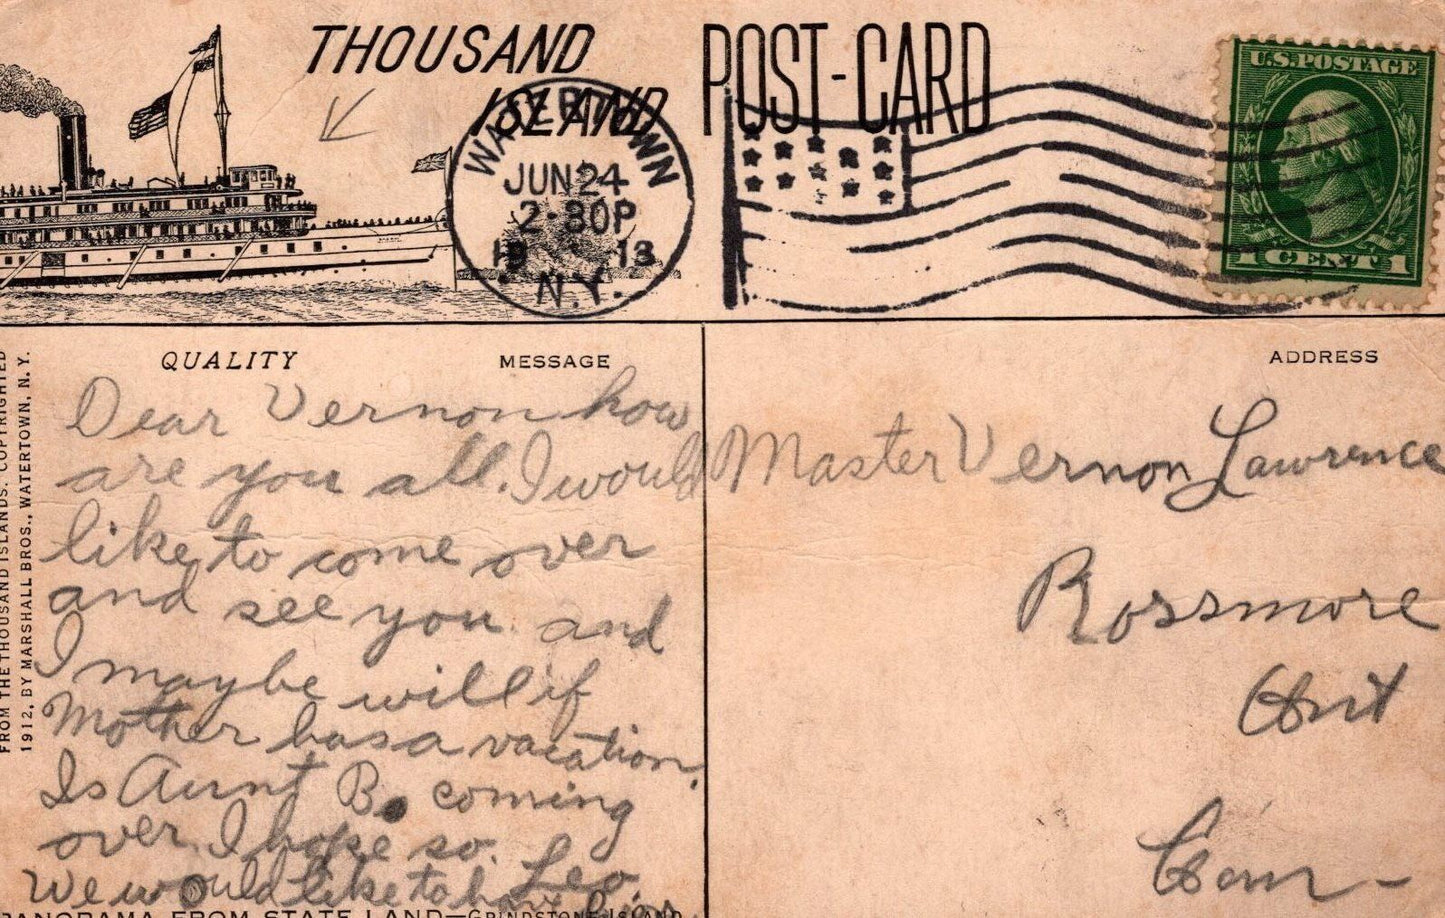 THOUSAND
ISLAND
POST-CARD
WATERTOWN
JUN 24
2-30P
1913
N.Y.
U.S. POSTAGE
1 CENT 1
QUALITY
MESSAGE
ADDRESS
FROM THE THOUSAND ISLANDS. COPYRIGHTED
1912, BY MARSHALL BROS., WATERTOWN, N. Y.
Dear Vernon how
are you all. I would
like to come over
and see you and
I maybe will if
Mother has a vacation.
Is Aunt B. coming
over. I hope so.
Leo.
We would like to have
Master Vernon Lawrence
Rossmore
Ont
Can-
PANORAMA FROM STATE LAND—GRINDSTONE ISLAND